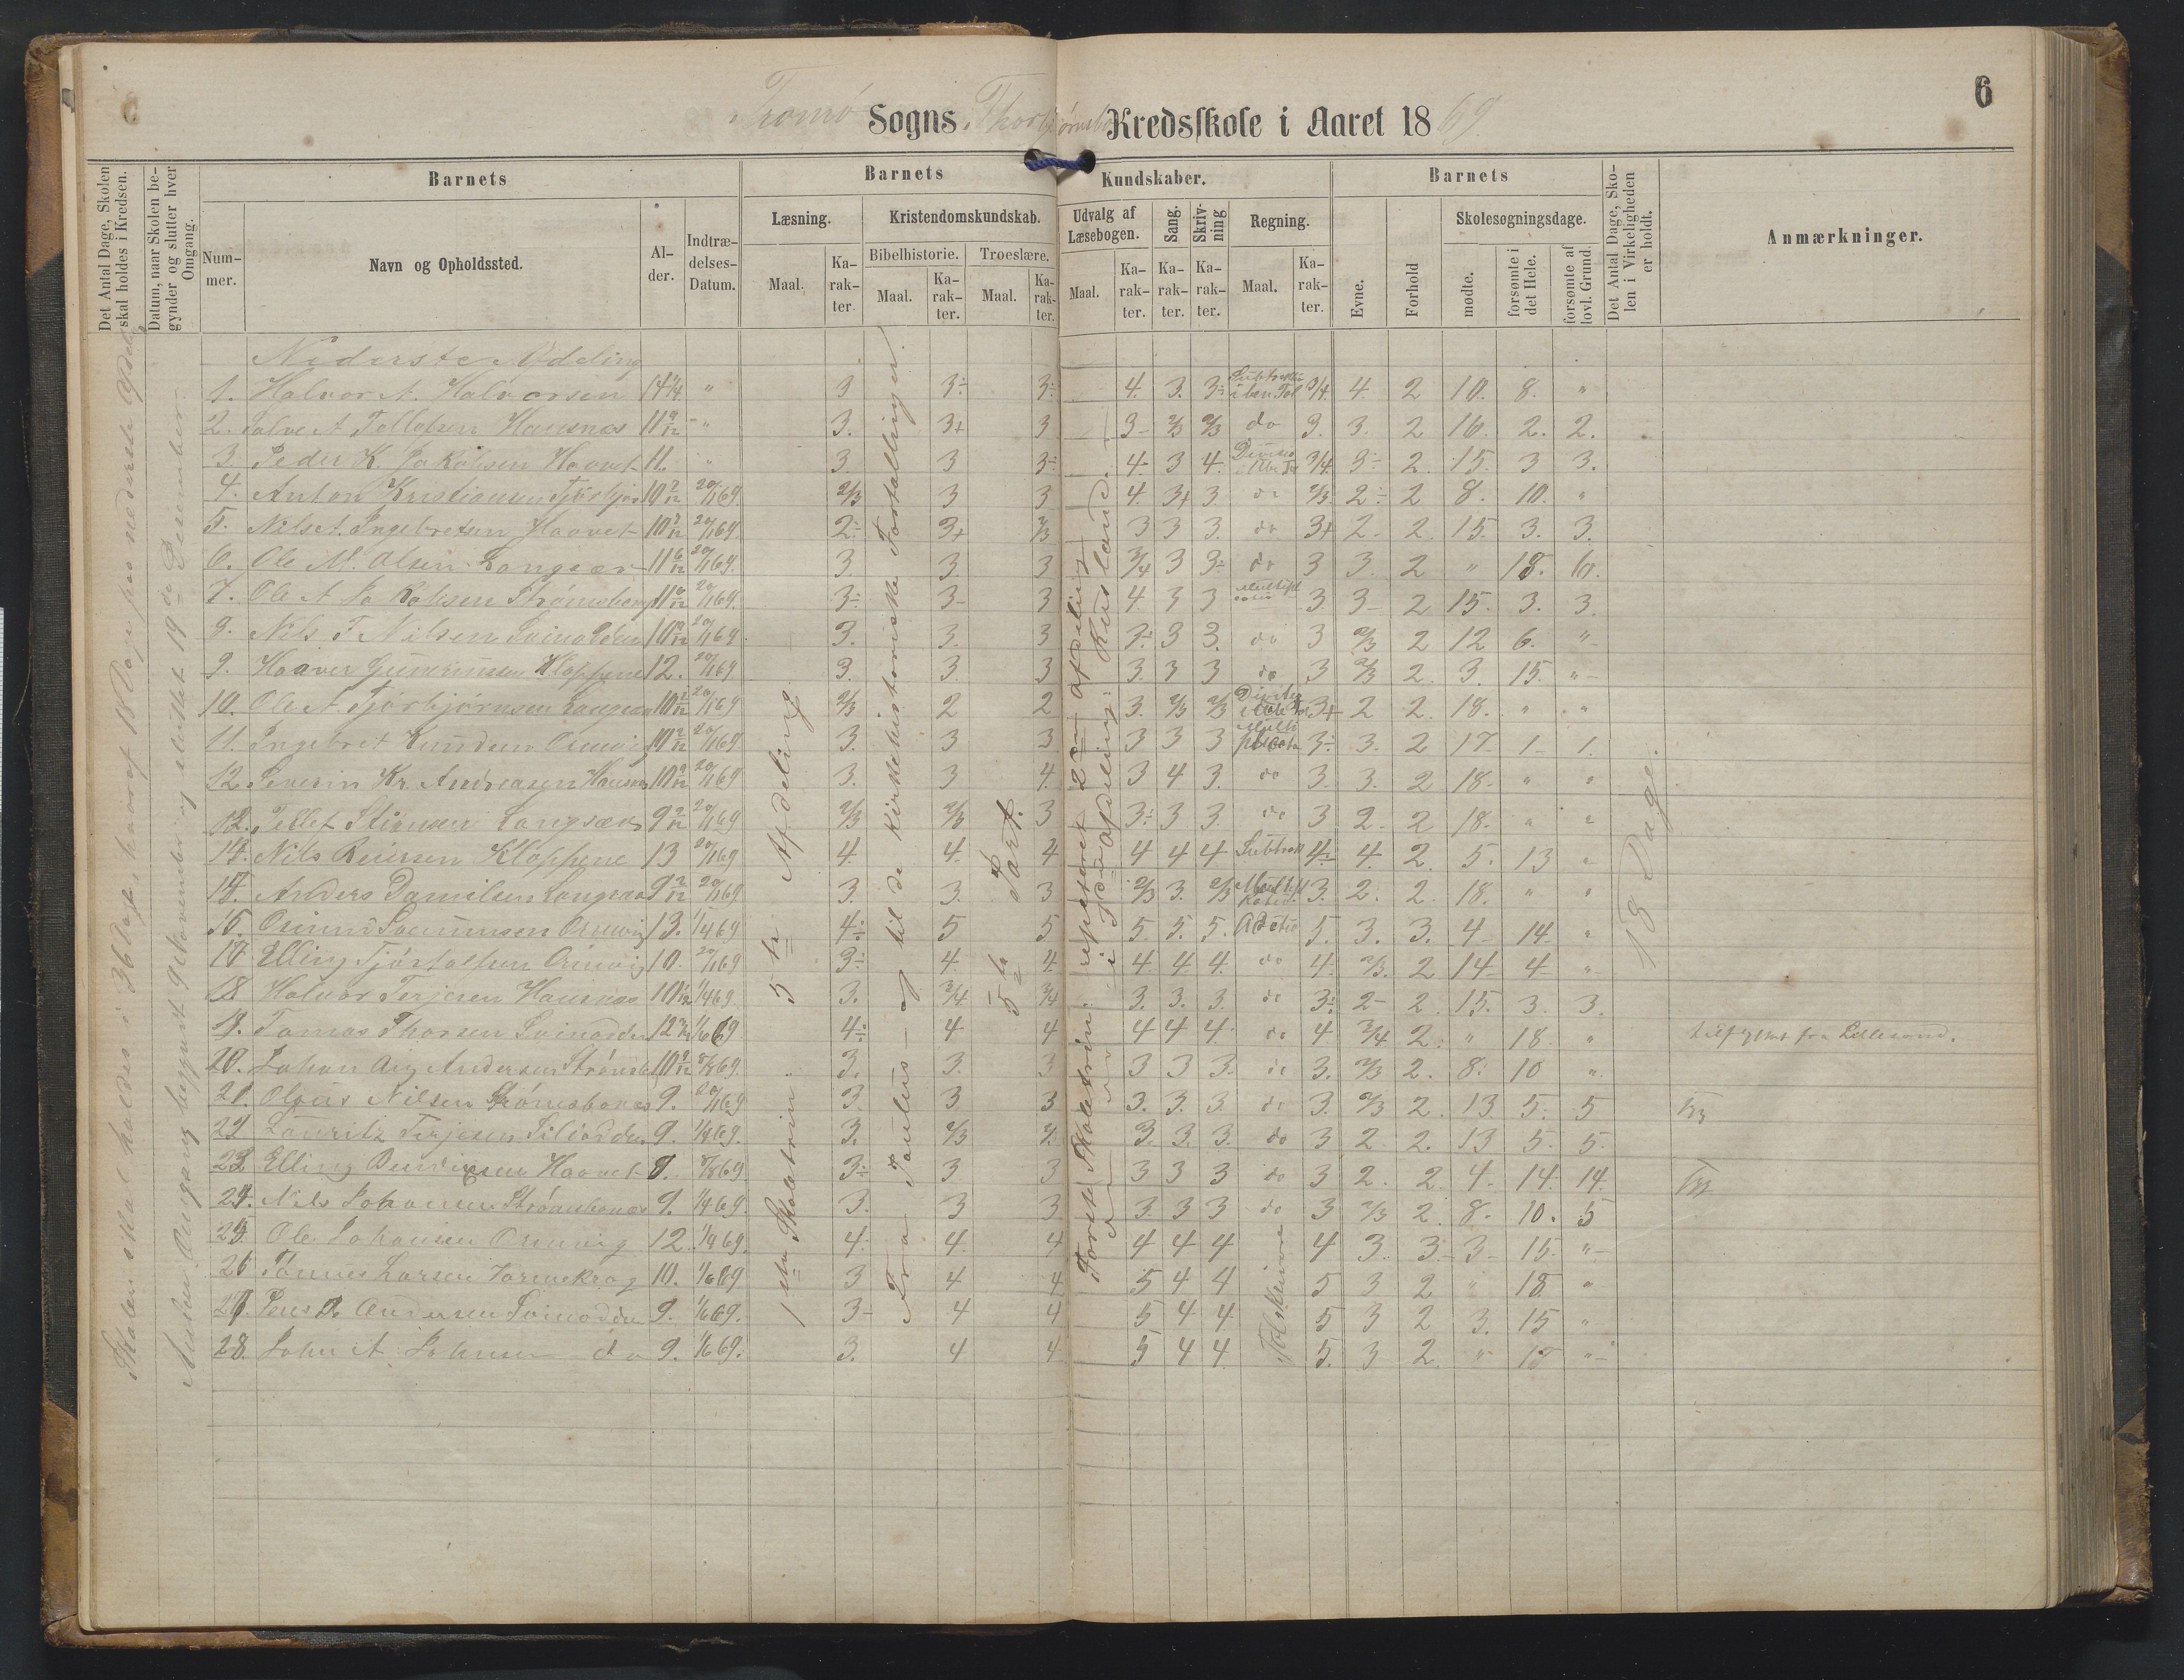 6
Tromø Sogns Thorbjørnsbo Kredsskole i Aaret 1869.
Det Antal Dage, Skolen skal holdes i Kredsen.
Datum, naar Skolen begynder og slutter hver Omgang.
Barnets
Nummer.
Navn og Opholdssted.
Alder.
Indtrædelses-Datum.
Barnets Kundskaber.
Læsning.
Maal.
Karakter.
Kristendomskundskab.
Bibelhistorie.
Maal.
Karakter.
Troeslære.
Maal.
Karakter.
Udvalg af Læsebogen.
Maal.
Karakter.
Sang.
Karakter.
Skrivning
Karakter.
Regning.
Maal.
Karakter.
Barnets
Evne.
Forhold
Skolesøgningsdage.
mødte.
forsømte i det Hele.
forsømte af lovl. Grund.
Det Antal Dage, Skolen i Virkeligheden er holdt.
Anmærkninger.
Skolen skal holdes i 36 Dage, hvoraf 18 Dage paa nederste Afdel
Anden Omgang begynt 9 November og sluttet 19de December.
1ste Skoletrin 5te Afdeling
Fra Paulus og til de kirkehistoriske Fortællinger.
5te Part.
Første Skoletrin repeteret 2den Afdeling
18 Dage.
Nederste Afdeling
1. Halvor A. Halvorsen 14 1/4 " 3 3÷ 3÷ 4. 3. 3÷ 3/4 4. 2 10. 8. "
2. Salve A Tellefsen Hausnæs 11 9/12 " 3. 3+ 3 3- 2/3 2/3 do 3. 3. 2 16. 2. 2.
3. Peder K. Jakobsen Haavet 11. " 3 3 3÷ 4. 3 4. 3/4 3÷ 2. 15. 3 3.
4. Anton Kristiansen 10 20/11 69 2/3 3 3 4. 3+ 3 do 2/3 2÷ 2 8. 10. "
5. Nils A. Ingebretsen Haavet 10 20/11 69. 2÷ 3+ 2/3 3 3 3. do 3+ 2. 2. 15. 3. 3.
6. Ole M. Olsen Langsær 11 6/12 20/11 69. 3. 3. 3 3/4 3 3÷ do 3 3. 2 " 18. 6.
7. Ole A Jakobsen Strømsbong 11 20/11 69. 3÷ 3- 3 4. 3 3 3 3- 2 15. 3. 3
8. Nils T Nilsen Svinodden 10 20/11 69. 3. 3. 3 3÷ 3 3. do 3 2/3 2 12 6. "
9. Haaver Gunderussen Kloppene 12. 20/11 69 3. 3. 3 3. 3 3 do 3 2/3 2. 3. 15. "
10. Ole A. Tjørbjørnsen Langsæ 10 20/11 69 2/3 2 2 3. 2/3 2/3 3+ 2 2. 18. " "
11. Ingebret Knudsen 10 2/12 20/11 69 3. 3 3 3 3 3 3÷ 3. 2 17. 1 1.
12. Severin Kr. Andreasen Hausnæs 10 9/12 20/11 69 3. 3 4. 3 4 3. do 3. 3. 2 18. " "
13. Tellef Stiansen Langsæ 9 2/12 20/11 69 2/3 2/3 3 3÷ 3 3. do 3 2. 2 18. " "
14. Nils Reiersen Kloppene 13 20/11 69 4. 4. 4 4 4 4 Subtrak 4÷ 4. 2. 5. 13 "
15. Anders Danielsen Langsæ 9 2/12 20/11 69. 3. 3. 3 2/3 3. 2/3 3. 2. 2. 18. " "
16. 13. 1/4 69 4÷ 5 5 5. 5. 5. Adetio 5. 3. 3. 4 14 "
17 Elling 10. 20/11 69 3÷ 4. 4. 4. 4. 4. do 4. 2/3. 2 14 4 "
18 Halvor Terjesen Hausnæs 10 1/4 69. 3. 3/4 3/4 3. 3. 3. do 3÷ 2- 2. 15. 3. 3.
19. Tomas Thorsen Svinodden 12 1/6 69 4÷ 4 4 4 4 4 do 4 3/4 2. " 18. " tilflyttet fra Lillesand.
20. Johan Aug Andersen 10 9/12 3. 3. 3 3 3 3. do 3. 2/3 2. 8. 10 "
21. Olaus Nilsen Strømsbones 9. 20/11 69 3. 3 3 3. 3. 3 do 3. 2/3 2. 13. 5. 5
22 Lauritz Terjesen 9. 1/4 69. 3. 2/3 2/3 3. 3. 3. do 3 2 2. 13 5. 5.
23. Elling Haavet 9. 3÷ 3 3 3 3 3 do 3 2. 2. 4. 14. 14.
24. Nils Johansen Strømsbonæs 9. 1/4 69. 3. 3 3 3. 3 3 do 3 2/3 2. 8. 10. 5
25. Ole Johansen 12. 1/4 69. 4. 4. 4 4 4 4 4 3. 3. 3. 15. "
26 Larsen 10. 1/6 69 3 4 4 5 4 4 5 3 2 " 18. "
27. Andersen Svinodden 9. 1/6 69. 3- 4 4 5 4 4. 5 3 2 3. 15 "
28. John A. Johnsen do 9. 1/6 69. 3. 4 4 5 4 4 5. 3 2. " 18 "